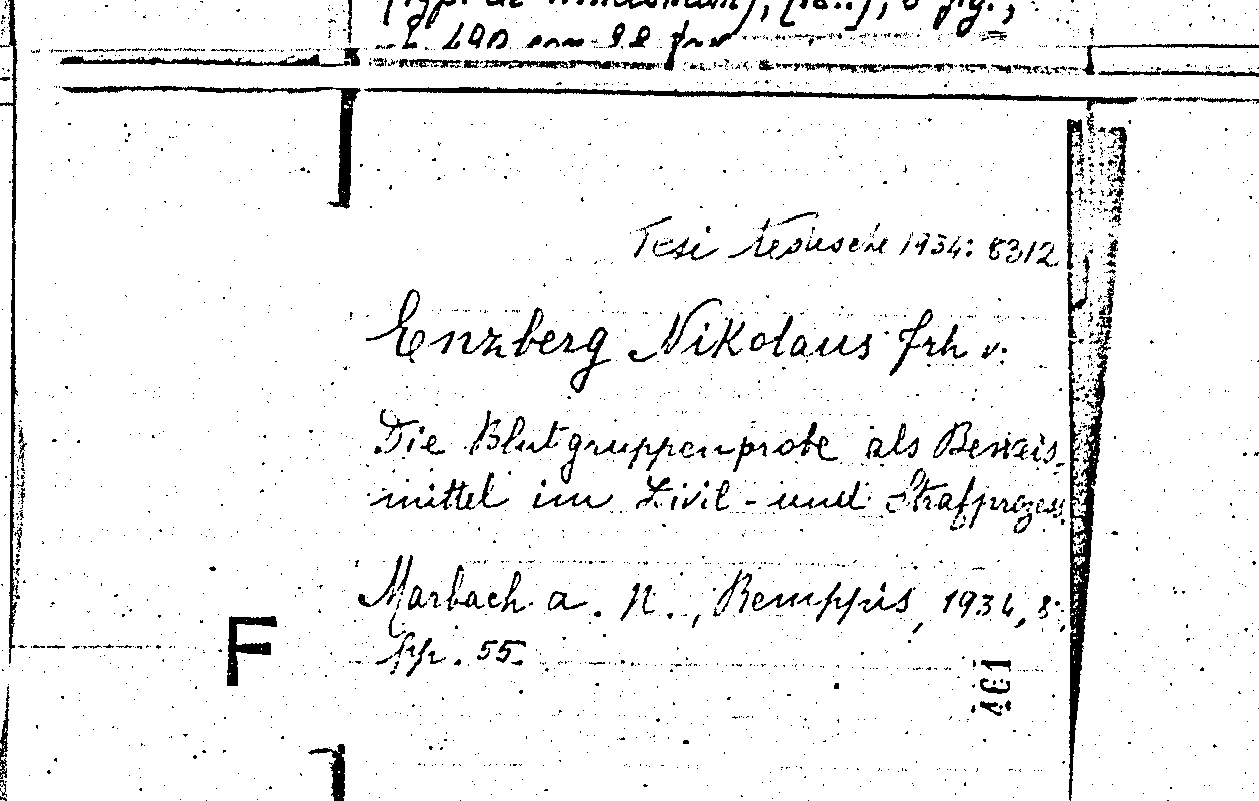 Tesi tedesche 1934: 8312
Enzberg Nikolaus frh v.
Die Blutgruppenprobe als Beweis-
mittel im Zivil - und Strafprozess.
Marbach a. N., Remppis, 1934, 8°,
pp. 55.
F
401